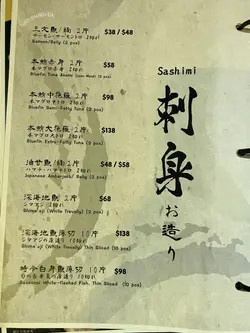 三文魚/腩 2片 $38 / $48
サーモン/サーモントロ 2切れ
Salmon/Belly (2 pcs)
本鮪赤身 2片 $58
本マグロ赤身 2切れ
Bluefin Tuna Akami (Lean Meat) (2 pcs)
本鮪中拖羅 2片 $98
本マグロ中トロ 2切れ
Bluefin Semi-Fatty Tuna (2 pcs)
本鮪大拖羅 2片 $138
本マグロ大トロ 2切れ
Bluefin Extra-Fatty Tuna (2 pcs)
油甘魚/腩 2片 $48 / $58
ハマチ/ハマチトロ 2切れ
Japanese Amberjack/ Belly (2 pcs)
深海池魚 2片 $68
シマアジ 2切れ
Shima'aji (White Trevally) (2 pcs)
深海池魚薄切 10片 $138
シマアジの薄造り 10切れ
Shima'aji (White Trevally) Thin Sliced (10 pcs)
時令白身魚薄切 10片 $98
旬の白身魚の薄造り 10切れ
Seasonal White-fleshed Fish, Thin Sliced (10 pcs)
Sashimi
刺身
お造り